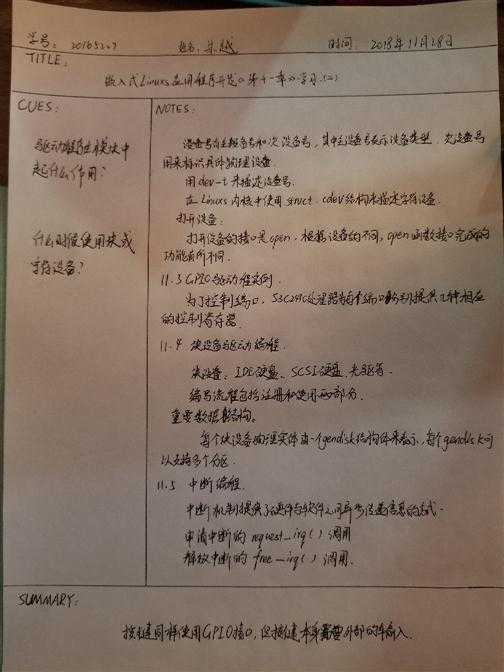 学号: 20165227 姓名: 朱越 时间: 2018年11月28日
TITLE:
嵌入式Linux应用程序开发《第十一章》学习(二)
CUES:
驱动程序在模块中
起什么作用?
什么时候使用块或
字符设备?
NOTES:
设备号有主设备号和次设备号,其中主设备号表示设备类型,次设备号
用来标识具体物理设备.
用dev-t来描述设备号.
在Linux内核中使用struct cdev结构来描述字符设备.
打开设备.
打开设备的接口是open,根据设备的不同,open函数接口完成的
功能有所不同.
11.3 GPIO驱动程实例.
为了控制端口,S3C2410处理器为每个端口都提供几种相应
的控制寄存器.
11.4 块设备驱动编程.
块设备:IDE硬盘、SCSI硬盘、光驱等.
编写流程包括注册和使用两部分.
重要数据结构.
每个块设备物理实体由一个gendisk结构体来表示,每个gendisk可
以支持多个分区.
11.5 中断编程.
中断机制提供了硬件与软件之间异步传递信息的方式.
申请中断的request_irq()调用
释放中断的free_irq()调用.
SUMMARY:
按键同样使用GPIO接口,但按键本身需要外部的输入.